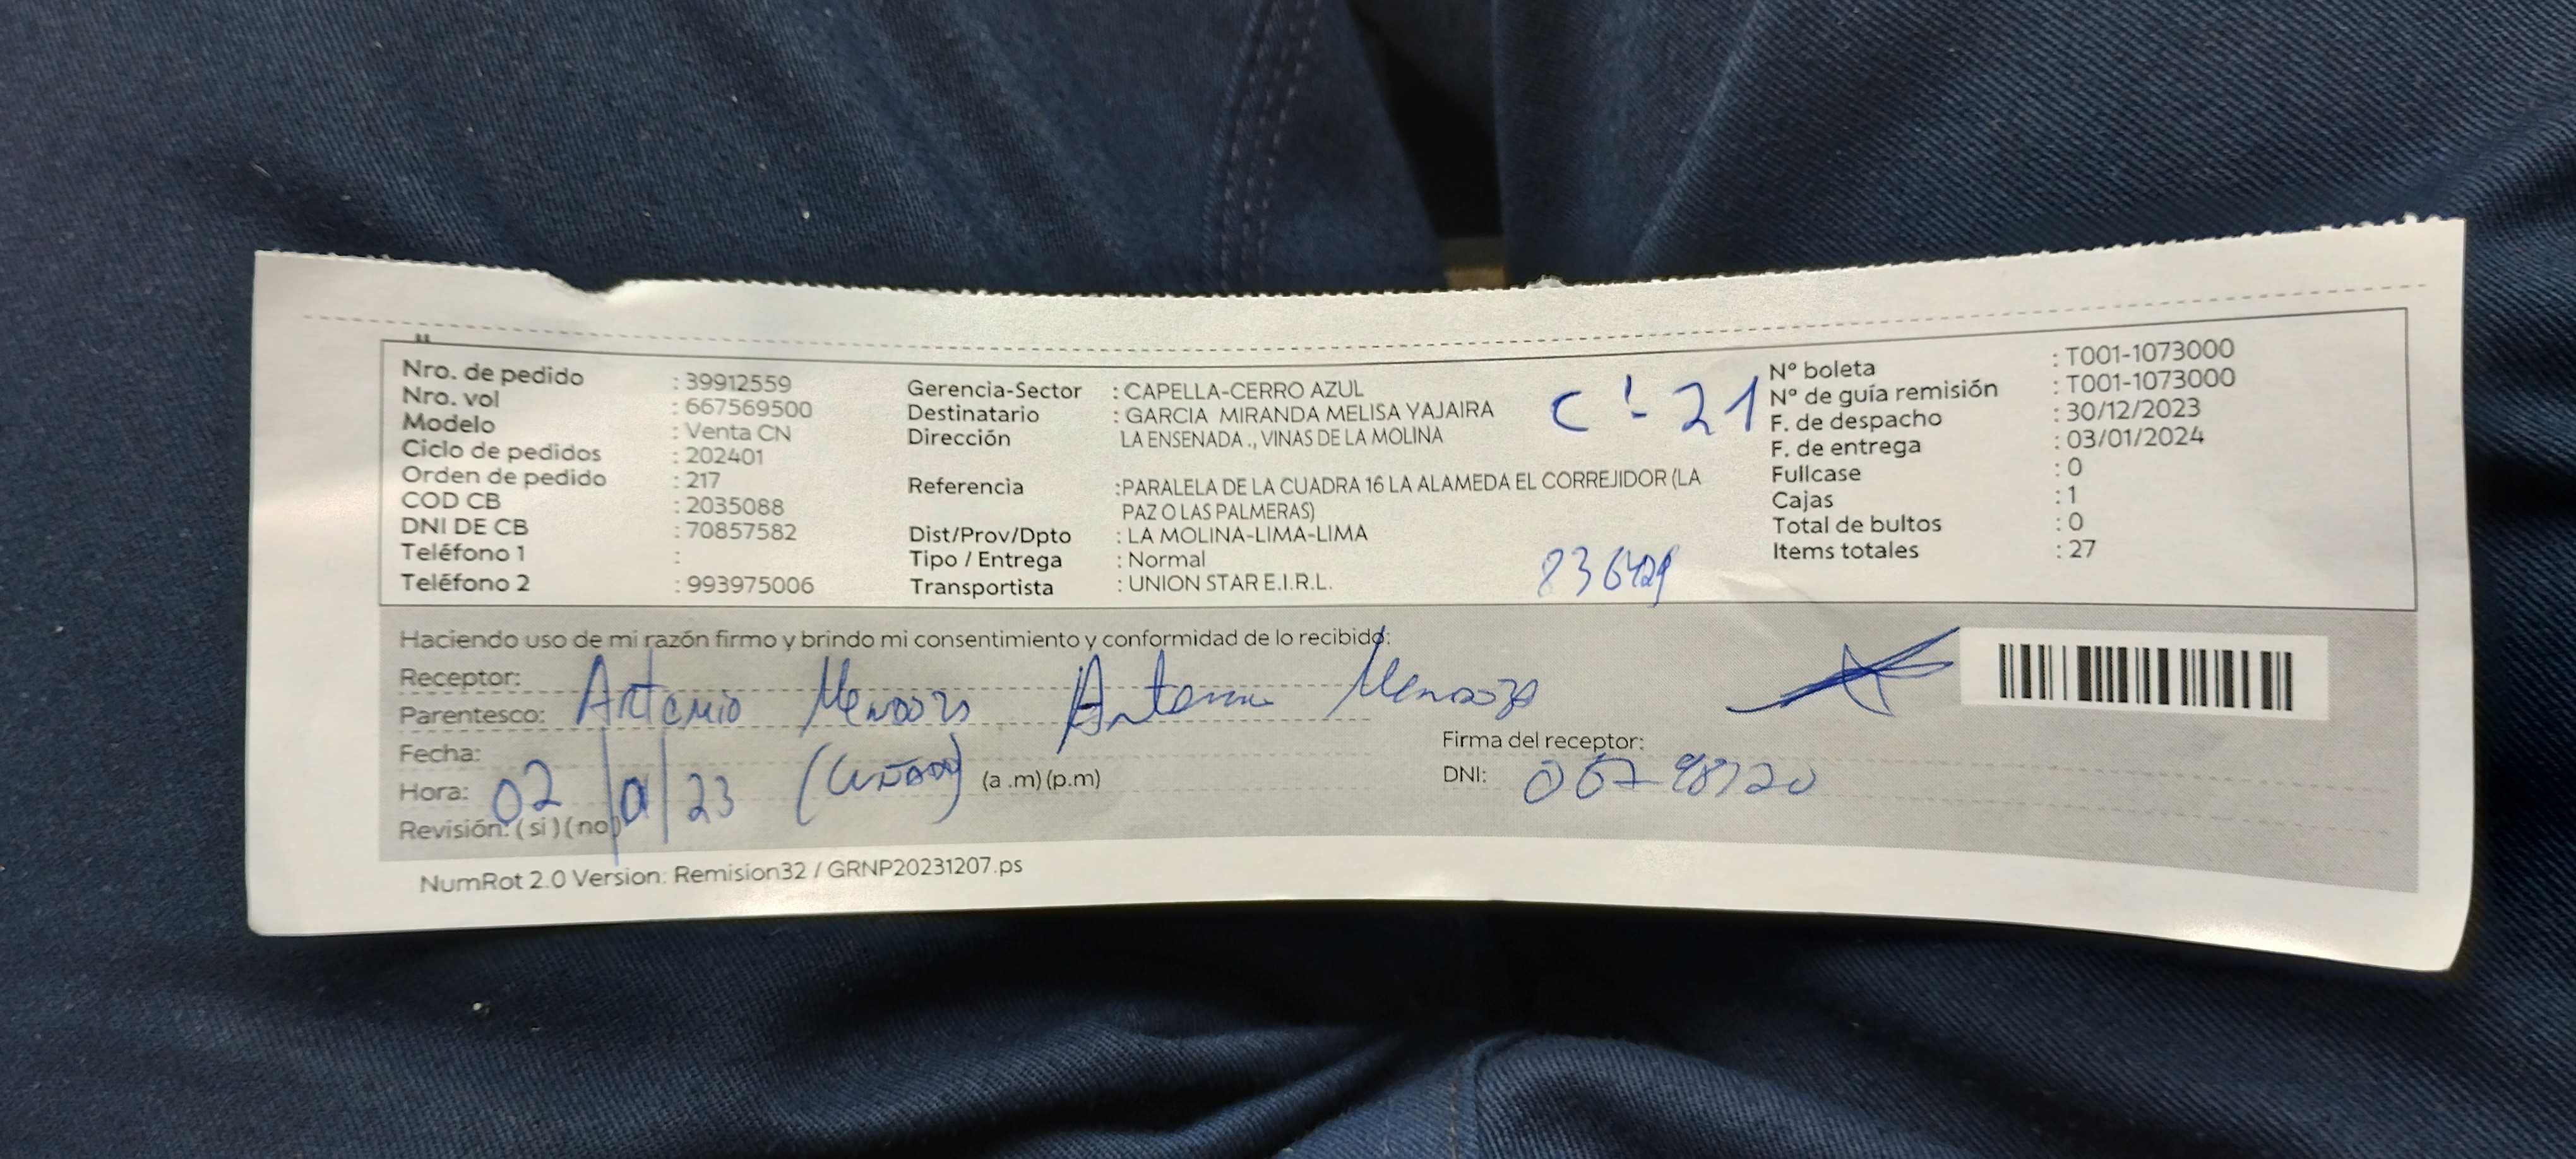 Nro. de pedido : 39912559
Nro. vol : 667569500
Modelo : Venta CN
Ciclo de pedidos : 202401
Orden de pedido : 217
COD CB : 2035088
DNI DE CB : 70857582
Teléfono 1 :
Teléfono 2 : 993975006
Gerencia-Sector : CAPELLA-CERRO AZUL
Destinatario : GARCIA MIRANDA MELISA YAJAIRA
Dirección LA ENSENADA ., VINAS DE LA MOLINA
Referencia :PARALELA DE LA CUADRA 16 LA ALAMEDA EL CORREJIDOR (LA
PAZ O LAS PALMERAS)
Dist/Prov/Dpto : LA MOLINA-LIMA-LIMA
Tipo / Entrega : Normal
Transportista : UNION STAR E.I.R.L.
C!-21
836429
Nº boleta : T001-1073000
Nº de guía remisión : T001-1073000
F. de despacho : 30/12/2023
F. de entrega : 03/01/2024
Fullcase : 0
Cajas : 1
Total de bultos : 0
Items totales : 27
Haciendo uso de mi razón firmo y brindo mi consentimiento y conformidad de lo recibido:
Receptor:
Parentesco: Artemio Mendoza
Fecha:
Hora: 02/01/23 (cuñado) (a .m) (p.m)
Revisión: ( si ) ( no )
Firma del receptor:
DNI:
NumRot 2.0 Version: Remision32 / GRNP20231207.ps